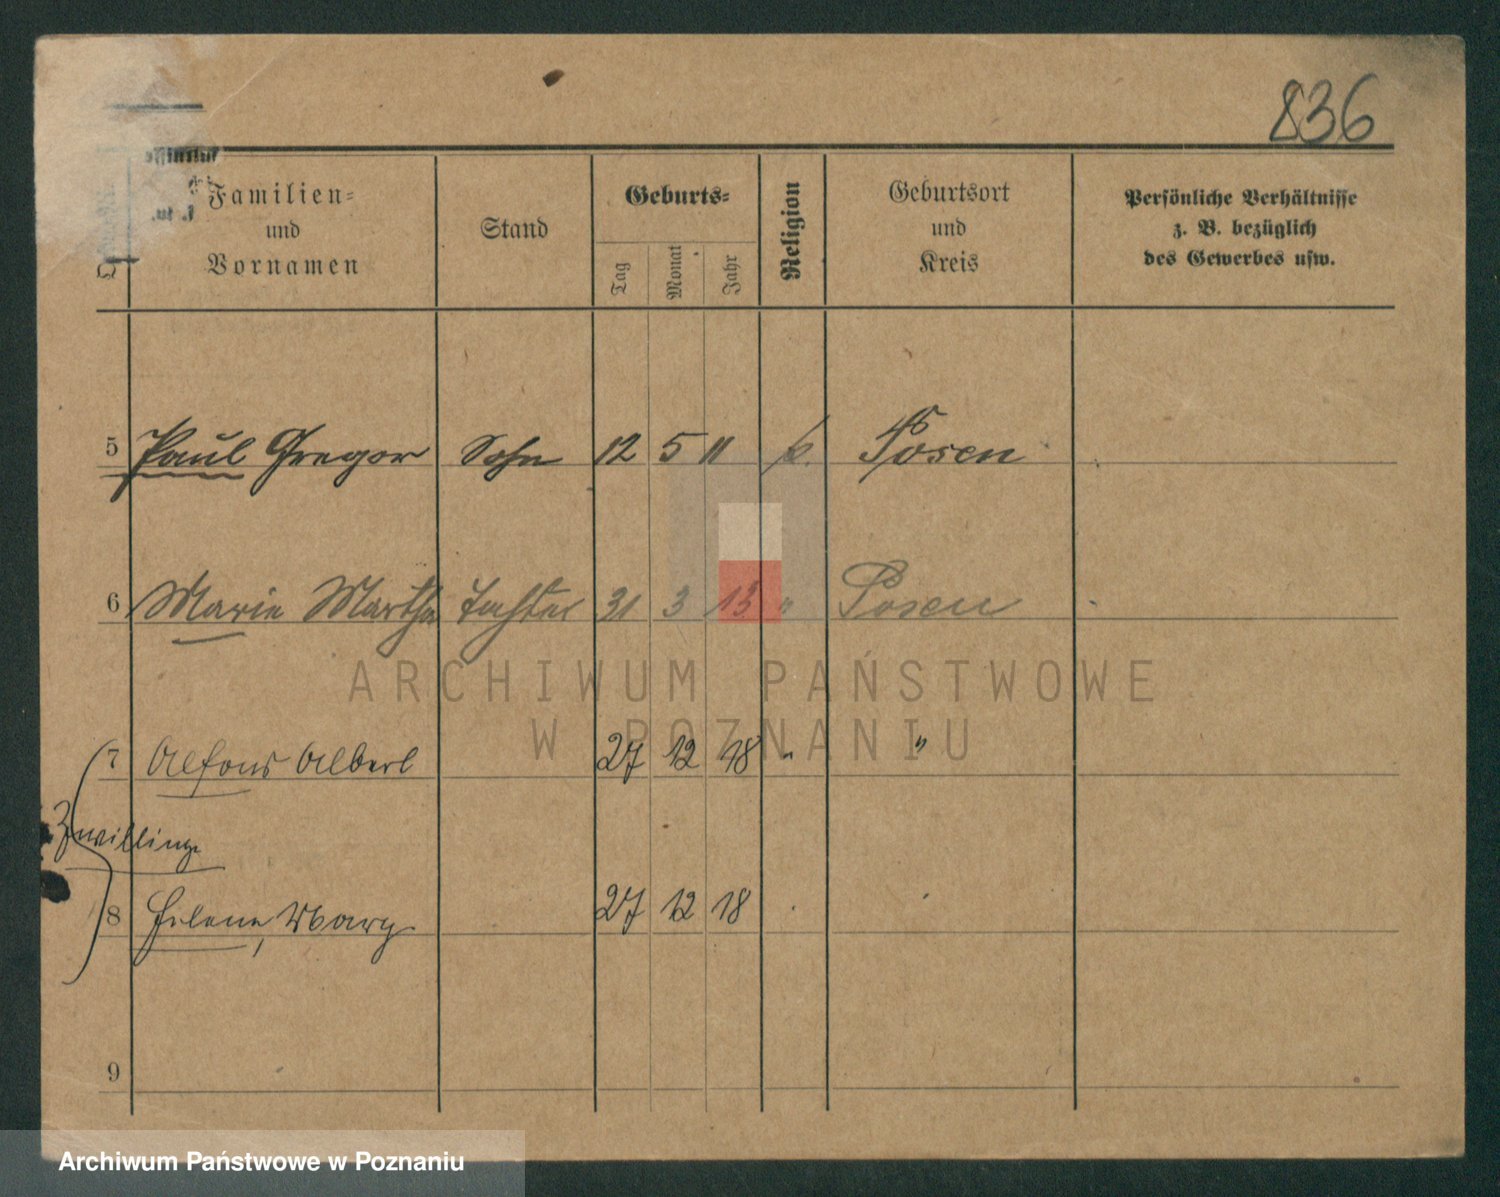 836
Familien=
und
Vornamen
Stand
Geburts=
Tag
Monat
Jahr
Religion
Geburtsort
und
Kreis
Persönliche Verhältnisse
z. B. bezüglich
des Gewerbes usw.
5 Paul Gregor Sohn 12 5 11 k. Posen
6 Marie Martha Tochter 31 3 13 " Posen
ARCHIWUM PAŃSTWOWE
W POZNANIU
7 Alfons Albert 27 12 18 " "
Zwillinge
8 Helene, Marg. 27 12 18
9
Archiwum Państwowe w Poznaniu